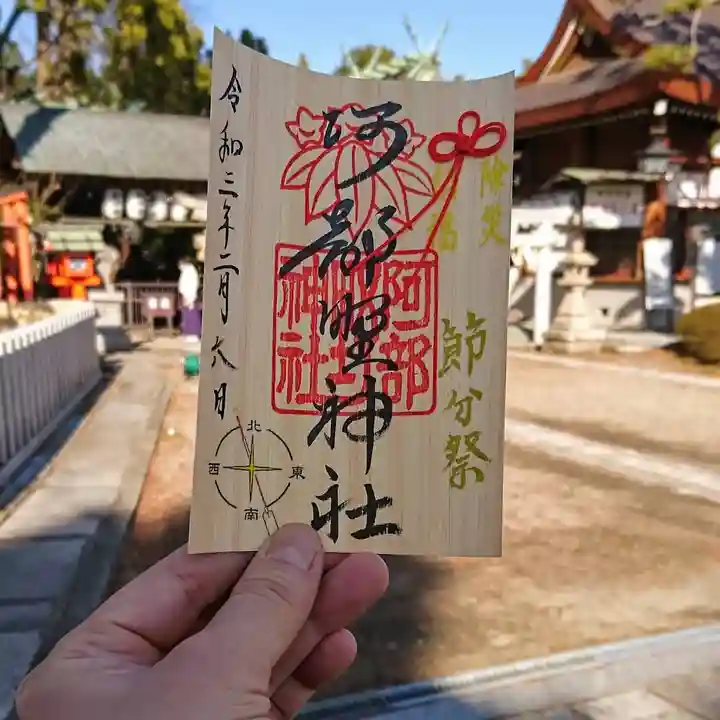 除災
節分祭
阿部野神社
阿部野神社
令和三年二月六日
北
西
東
南